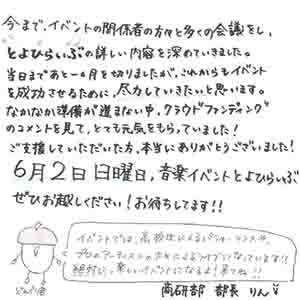 今まで、イベントの関係者の方々と多くの会議をし、
とよひらいぶの詳しい内容を深めていきました。
当日まであと一ヵ月を切りましたが、これからもイベント
を成功させるために、尽力していきたいと思います。
なかなか準備が進まない中、クラウドファンディング
のコメントを見て、とても元気をもらっていました!
ご支援していただいた方、本当にありがとうございました!
6月2日日曜日、音楽イベントとよひらいぶ
ぜひお越しください!お待ちしてます!!
イベントでは、高校生によるパフォーマンスや、
プロのアーティストの方々によるライブとなっています!!
絶対に、楽しいイベントになるよ!来てね!!
商研部 部長 りん